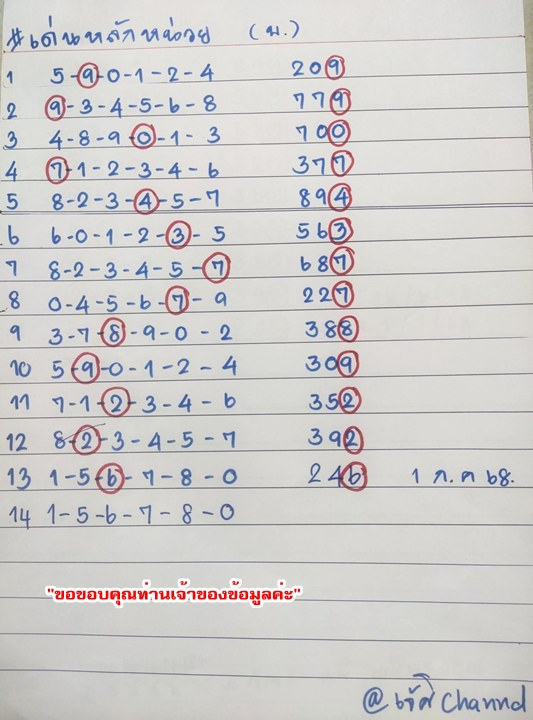 #เด่นหลักหน่วย (ม.)
1 5-9-0-1-2-4 209
2 9-3-4-5-6-8 779
3 4-8-9-0-1-3 700
4 7-1-2-3-4-6 377
5 8-2-3-4-5-7 894
6 6-0-1-2-3-5 563
7 8-2-3-4-5-7 687
8 0-4-5-6-7-9 227
9 3-7-8-9-0-2 388
10 5-9-0-1-2-4 309
11 7-1-2-3-4-6 352
12 8-2-3-4-5-7 392
13 1-5-6-7-8-0 246 1 ก.ค 68.
14 1-5-6-7-8-0
"ขอขอบคุณท่านเจ้าของข้อมูลค่ะ"
@ Channel